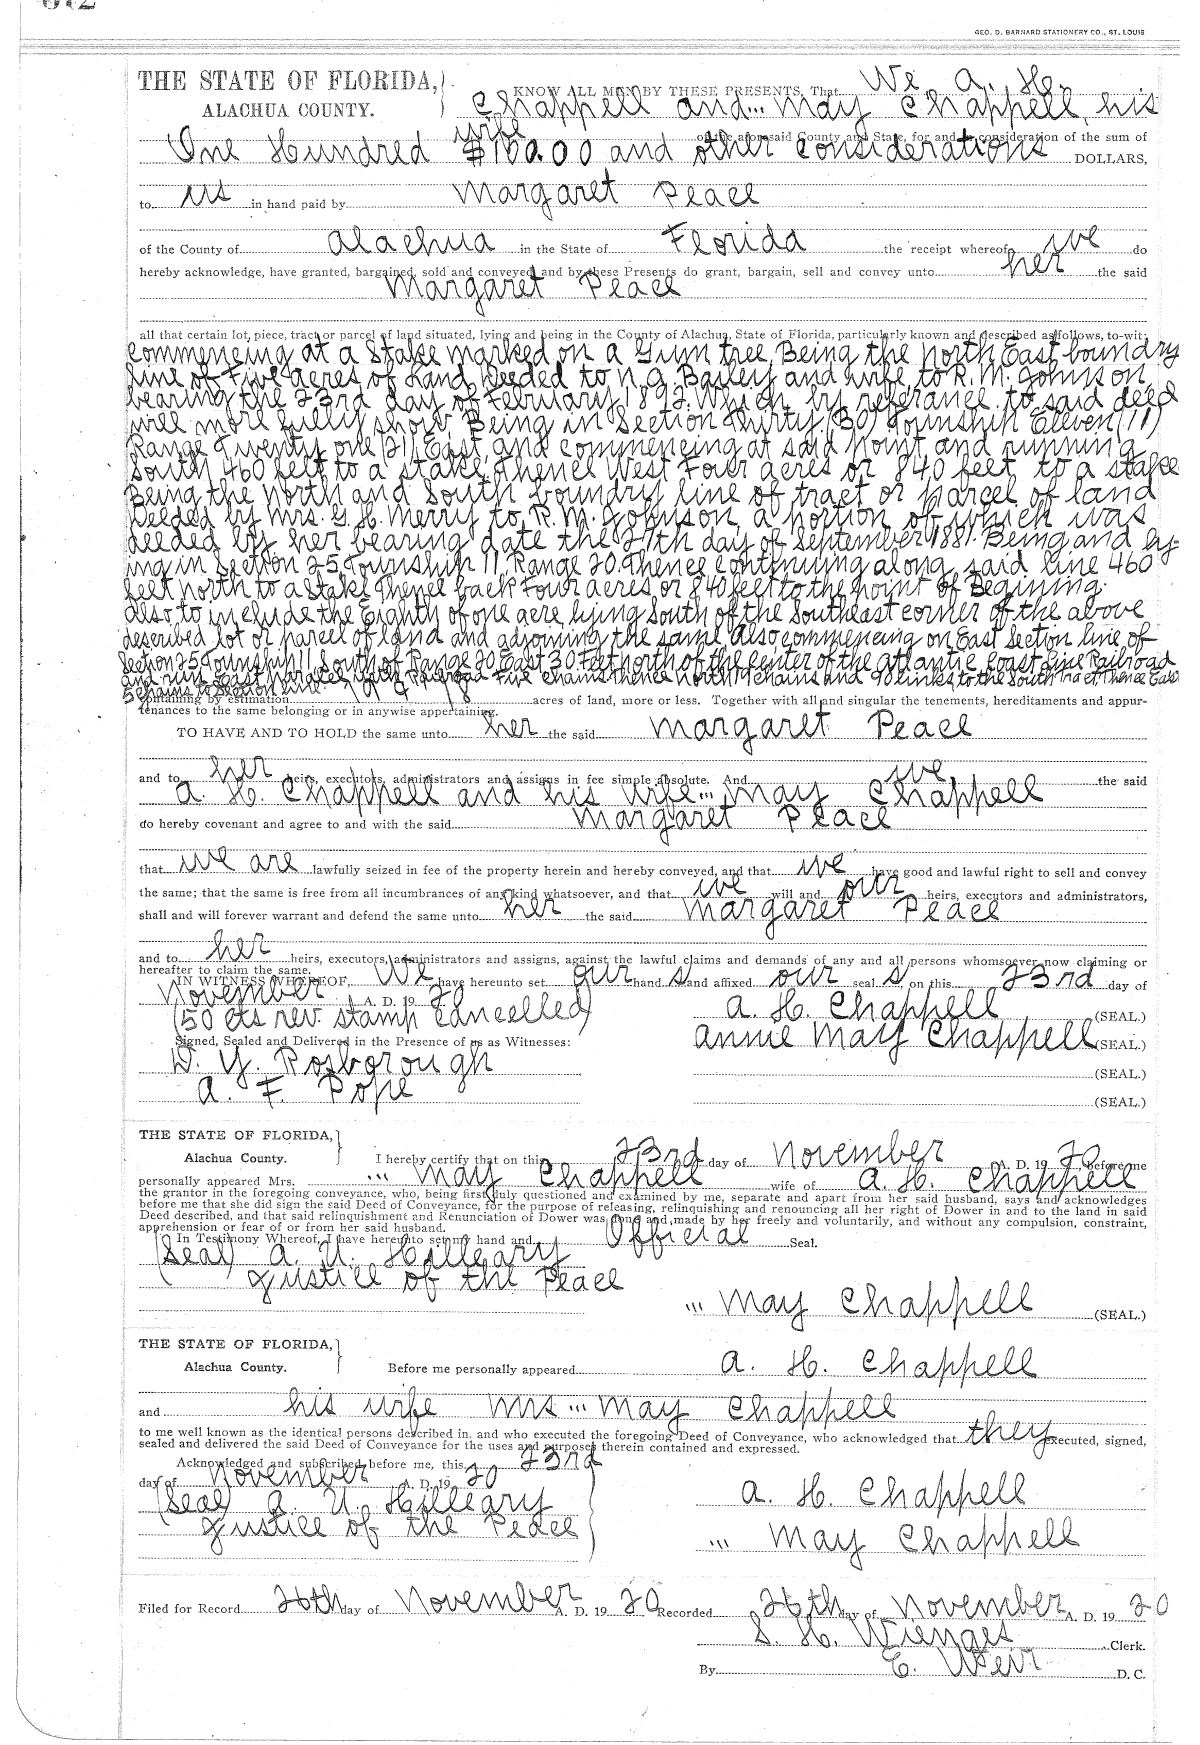 GEO. D. BARNARD STATIONERY CO., ST. LOUIS
THE STATE OF FLORIDA,
ALACHUA COUNTY.
KNOW ALL MEN BY THESE PRESENTS, That We A. H.
Chappell and ... May Chappell, his
wife of the aforesaid County and State, for and in consideration of the sum of
One Hundred $100.00 and other considerations DOLLARS,
to us in hand paid by Margaret Peace
of the County of Alachua in the State of Florida the receipt whereof we do
hereby acknowledge, have granted, bargained, sold and conveyed and by these Presents do grant, bargain, sell and convey unto her the said
Margaret Peace
all that certain lot, piece, tract or parcel of land situated, lying and being in the County of Alachua, State of Florida, particularly known and described as follows, to-wit:
Commencing at a Stake marked on a Gum tree, Being the North East boundry
line of Five acres of Land Deeded to N. G. Bailey and wife, to R. M. Johnson
bearing the 23rd day of February 1892. Which by referance to said deed
will more fully show. Being in Section Thirty (30) Township Eleven (11)
Range Twenty one (21) East, and commencing at said Point and running
South 460 feet to a stake, Thence West Four acres or 840 feet to a stake
Being the North and South boundry line of tract or parcel of land
Deeded by Mrs. G. H. Merry to R. M. Johnson a portion of which was
deeded by her bearing date the 27th day of September 1881. Being and ly-
ing in Section 25 Township 11, Range 20. Thence continuing along said line 460
feet north to a stake Thence back Four acres or 840 feet to the point of Beginning.
also to include the Eighth of one acre, lying South of the Southeast corner of the above
described lot or parcel of land and adjoining the same. Also commencing on East section line of
Section 25 Township 11 South of Range 20 East 30 Feet north of the center of the Atlantic Coast Line Railroad
and run East Paralel with Railroad Five chains thence north 19 chains and 98 links to the South tract Thence East
5 chains to Section line.
containing by estimation acres of land, more or less. Together with all and singular the tenements, hereditaments and appur-
tenances to the same belonging or in anywise appertaining.
TO HAVE AND TO HOLD the same unto her the said Margaret Peace
and to her heirs, executors, administrators and assigns in fee simple absolute. And we, the said
A. H. Chappell and his wife ... May Chappell
do hereby covenant and agree to and with the said Margaret Peace
that we are lawfully seized in fee of the property herein and hereby conveyed, and that we have good and lawful right to sell and convey
the same; that the same is free from all incumbrances of any kind whatsoever, and that we will and our heirs, executors and administrators,
shall and will forever warrant and defend the same unto her the said Margaret Peace
and to her heirs, executors, administrators and assigns, against the lawful claims and demands of any and all persons whomsoever now claiming or
hereafter to claim the same.
IN WITNESS WHEREOF, We have hereunto set our hand s and affixed our seal s on this 23rd day of
November A. D. 19 20
(50 cts rev. stamp cancelled) A. H. Chappell (SEAL.)
Signed, Sealed and Delivered in the Presence of us as Witnesses: Annie May Chappell (SEAL.)
D. Y. Rosborough (SEAL.)
A. F. Pope (SEAL.)
THE STATE OF FLORIDA,
Alachua County.
I hereby certify that on this 23rd day of November A. D. 19 20, before me
personally appeared Mrs. ... May Chappell wife of A. H. Chappell
the grantor in the foregoing conveyance, who, being first duly questioned and examined by me, separate and apart from her said husband, says and acknowledges
before me that she did sign the said Deed of Conveyance, for the purpose of releasing, relinquishing and renouncing all her right of Dower in and to the land in said
Deed described, and that said relinquishment and Renunciation of Dower was done and made by her freely and voluntarily, and without any compulsion, constraint,
apprehension or fear of or from her said husband.
In Testimony Whereof, I have hereunto set my hand and Official Seal.
(Seal) A. U. Hilleary
Justice of the Peace
... May Chappell (SEAL.)
THE STATE OF FLORIDA,
Alachua County.
Before me personally appeared A. H. Chappell
and his wife Mrs ... May Chappell
to me well known as the identical persons described in, and who executed the foregoing Deed of Conveyance, who acknowledged that they executed, signed,
sealed and delivered the said Deed of Conveyance for the uses and purposes therein contained and expressed.
Acknowledged and subscribed before me, this 23rd
day of November A. D. 19 20
(Seal) A. U. Hilleary A. H. Chappell
Justice of the Peace ... May Chappell
Filed for Record 26th day of November A. D. 19 20 Recorded 26th day of November A. D. 19 20
S. H. Wienges Clerk.
By E. Weir D. C.